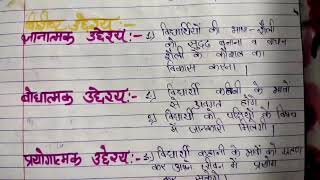 विशिष्ट उद्देश्य:-
ज्ञानात्मक उद्देश्य:- 1) विद्यार्थियों की भाषा-शैली
को सुदृढ़ बनाना व
शैली के कौशल का
विकास करना।
बोधात्मक उद्देश्य:- 1.) विद्यार्थी कहानी के भावों
से अवगत होंगे।
2) विद्यार्थी को के विषय
में जानकारी मिलेगी।
प्रयोगात्मक उद्देश्य:- 1) विद्यार्थी कहानी के भावों को ग्रहण
कर अपने जीवन में प्रयोग
कर सकेंगे।